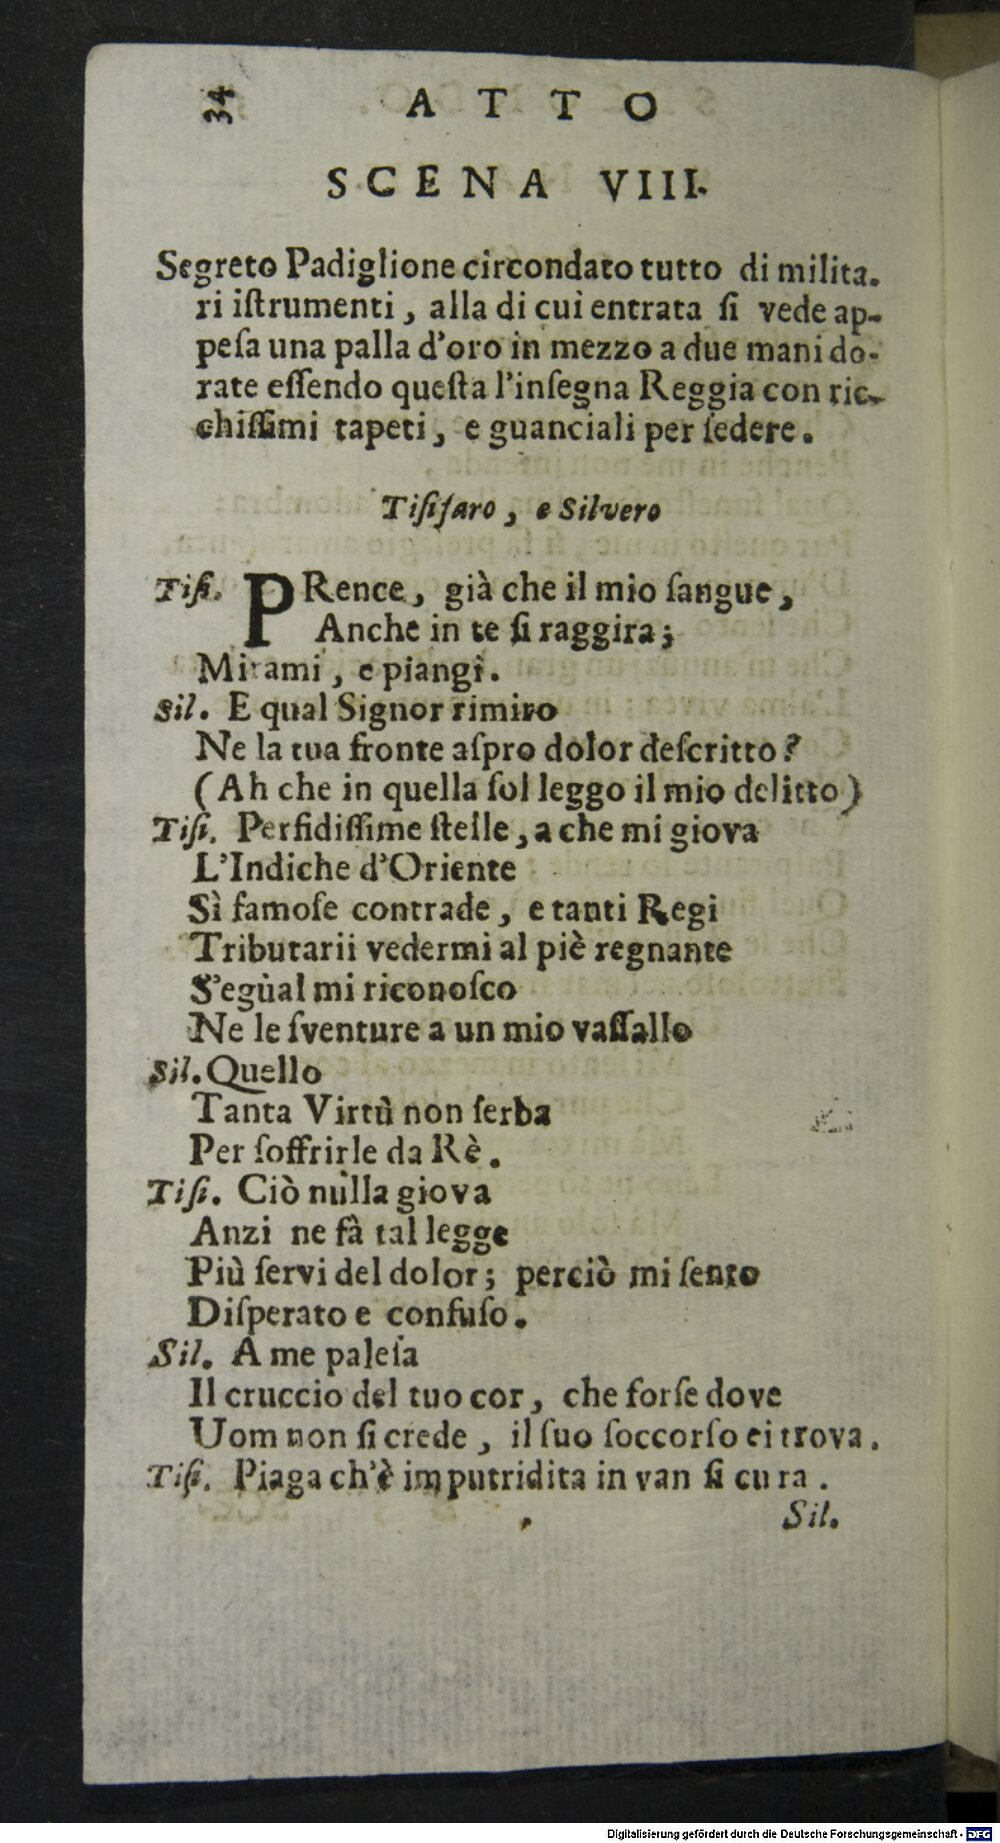 34 ATTO
SCENA VIII.
Segreto Padiglione circondato tutto di milita.
ri iſtrumenti, alla di cui entrata ſi vede ap-
peſa una palla d'oro in mezzo a due mani do-
rate eſſendo queſta l'inſegna Reggia con ric-
chiſſimi tapeti, e guanciali per ſedere.
Tiſiſaro, e Silvero
Tiſi. PRence, già che il mio ſangue,
Anche in te ſi raggira;
Mirami, e piangi.
Sil. E qual Signor rimiro
Ne la tua fronte aſpro dolor deſcritto?
(Ah che in quella ſol leggo il mio delitto)
Tiſi. Perfidiſſime ſtelle, a che mi giova
L'Indiche d'Oriente
Sì famoſe contrade, e tanti Regi
Tributarii vedermi al piè regnante
S'egùal mi riconoſco
Ne le ſventure a un mio vaſſallo
Sil. Quello
Tanta Virtù non ſerba
Per ſoffrirle da Rè.
Tiſi. Ciò nùlla giova
Anzi ne fà tal legge
Più ſervi del dolor; perciò mi ſento
Diſperato e confuſo.
Sil. A me paleſa
Il cruccio del tuo cor, che forſe dove
Uom non ſi crede, il ſuo ſoccorſo ei trova.
Tiſi. Piaga ch'è imputridita in van ſi cura.
Sil.
Digitalisierung gefördert durch die Deutsche Forschungsgemeinschaft - DFG